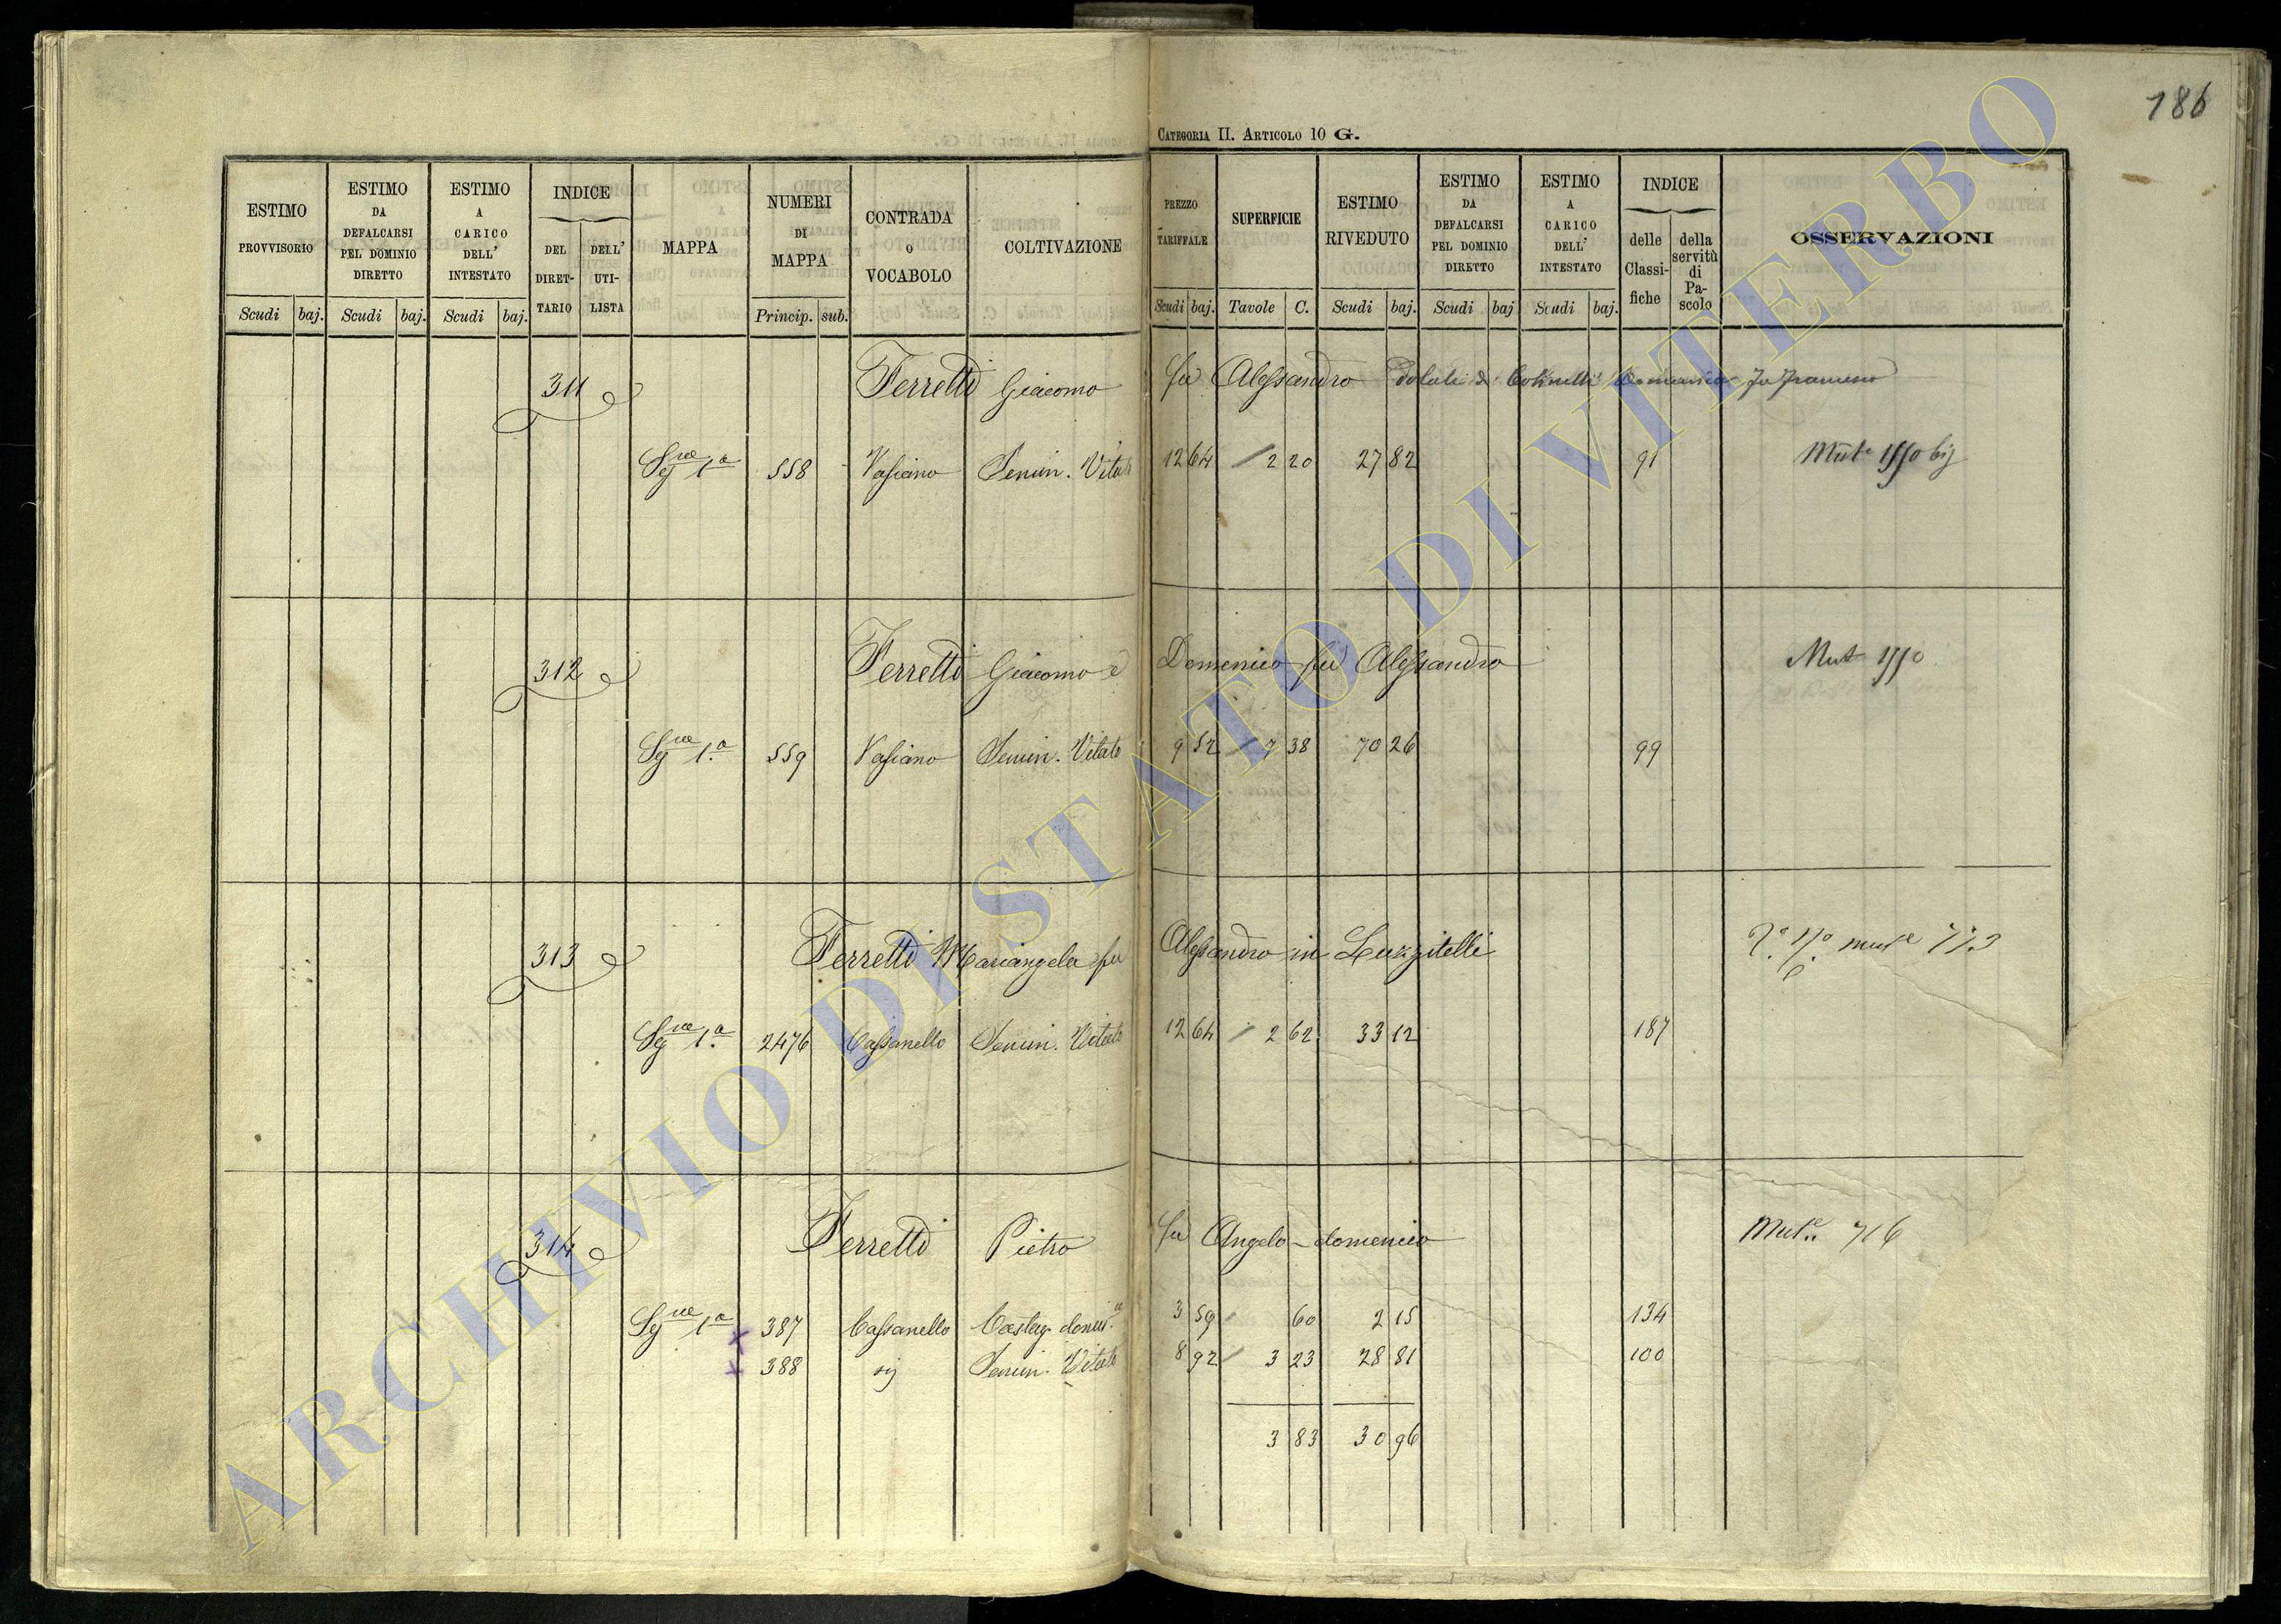 186
CATEGORIA II. ARTICOLO 10 G.
ESTIMO PROVVISORIO
ESTIMO DA DEFALCARSI PEL DOMINIO DIRETTO
ESTIMO A CARICO DELL' INTESTATO
INDICE
DEL DIRETTARIO
DELL' UTILISTA
MAPPA
NUMERI DI MAPPA
CONTRADA O VOCABOLO
COLTIVAZIONE
PREZZO TARIFFALE
SUPERFICIE
ESTIMO RIVEDUTO
ESTIMO DA DEFALCARSI PEL DOMINIO DIRETTO
ESTIMO A CARICO DELL' INTESTATO
INDICE
delle Classifiche
della servitù di Pascolo
OSSERVAZIONI
Scudi baj. Scudi baj. Scudi baj. Princip. sub. Scudi baj. Tavole C. Scudi baj. Scudi baj Scudi baj.
311 Ferretti Giacomo fu Alessandro
Sgne 1a 558 Vasiano Semin. Vitato 12 64 2 20 27 82 91
312 Ferretti Giacomo e Domenico fu Alessandro
Sgne 1.a 559 Vasiano Semin. Vitato 9 52 7 38 70 26 99
313 Ferretti Mariangela fu Alessandro in Luzzitelli
Sgne 1.a 2476 Cassanello Semin. Vitato 12 64 2 62 33 12 187
314 Ferretti Pietro fu Angelo-domenico Mute 716
Sgne 1a 387 Cassanello Castag. domes.co 3 59 60 2 15 134
388 Semin. Vitato 8 92 3 23 28 81 100
3 83 30 96
ARCHIVIO DI STATO DI VITERBO